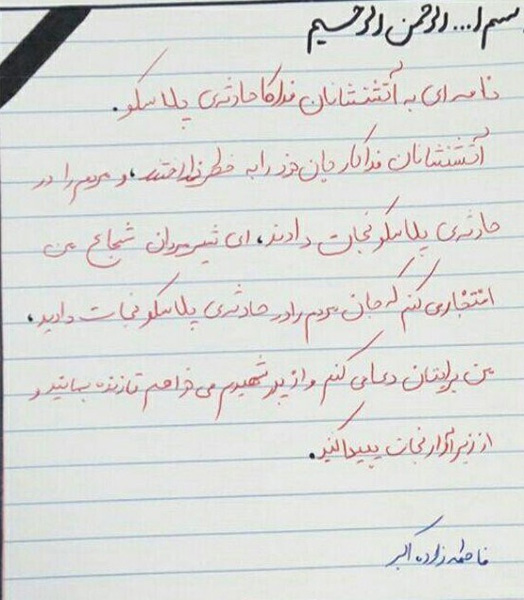 بسم ا... الرحمن الرحیم
نامه ای به آتشنشانان فداکار حادثه‌ی پلاسکو.
آتشنشانان فداکار جان خود را به خطر انداختند، و مردم را در
حادثه‌ی پلاسکو نجات دادند، ای شیرمردان شجاع من
افتخار می کنم که جان مردم را در حادثه‌ی پلاسکو نجات دادید،
من برایتان دعا می کنم و از پدر شهیدم می خواهم تا زنده بمانید و
از زیر آوار نجات پیدا کنید.
فاطمه زاده اکبر